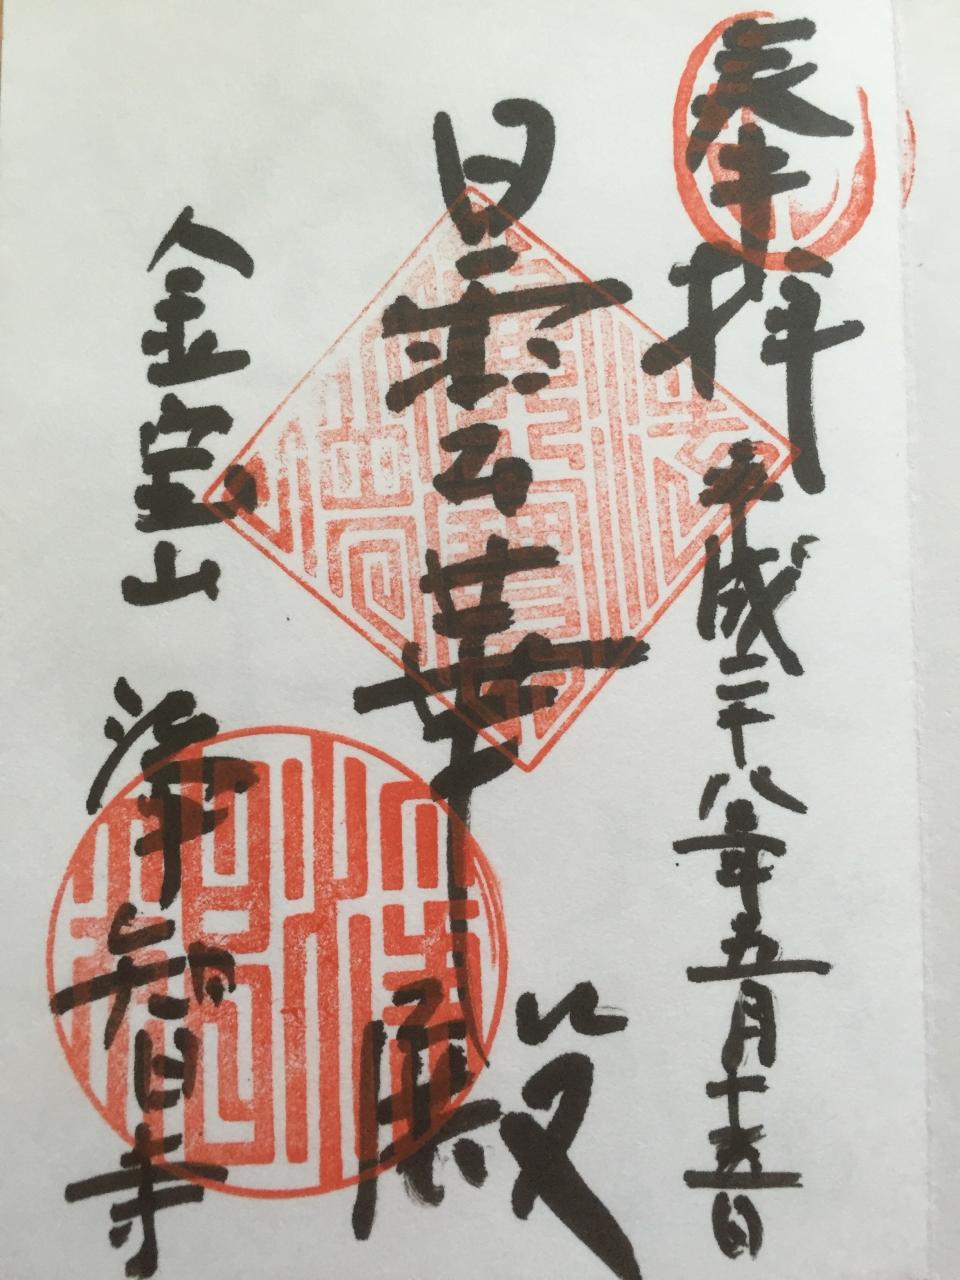 奉拝
平成二十八年五月十五日
曇華殿
金宝山
浄智寺